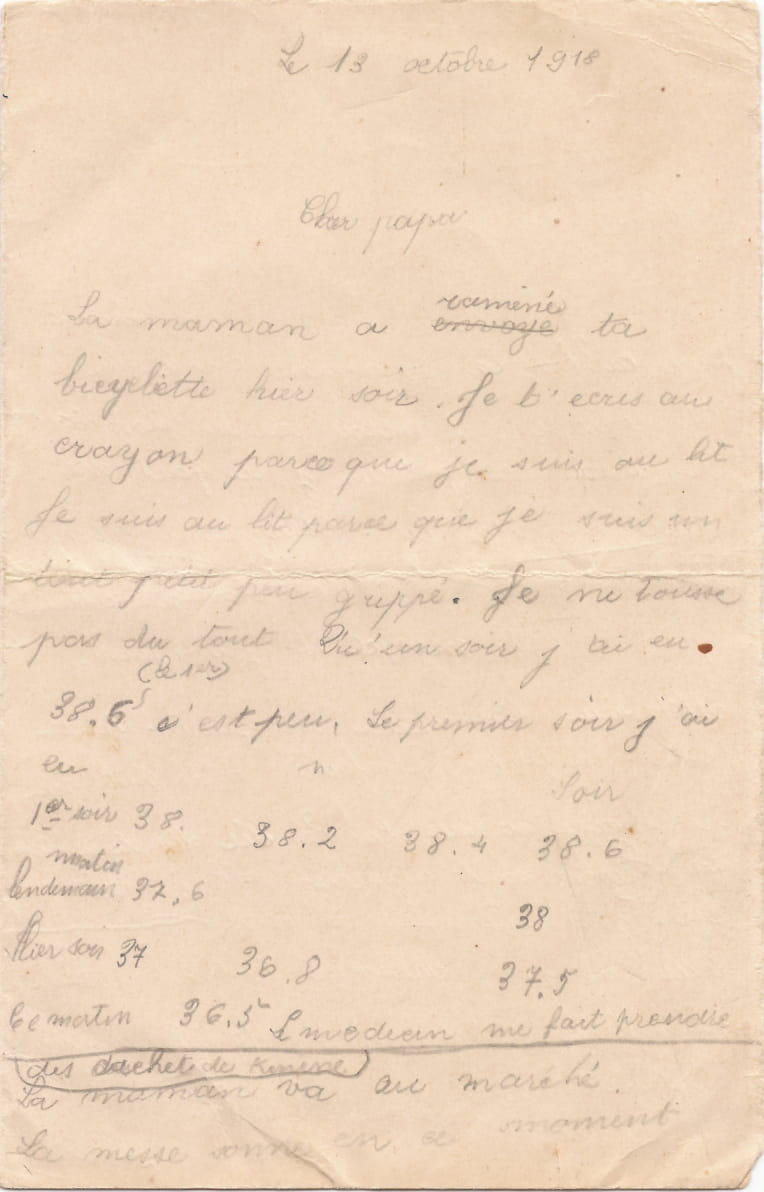 Le 13 octobre 1918
Cher papa
La maman a envoyé ramené ta
bicyclette hier soir. Je t'ecris au
crayon parce que je suis au lit
Je suis au lit parce que je suis un
tout petit peu grippé. Je ne tousse
pas du tout Qu'un soir j'ai eu
(le 1er)
38.6 c'est peu. Le premier soir j'ai
eu
Soir
1er soir 38. 38.2 38.4 38.6
matin
lendemain 37,6
38
Hier soir 37 36.8 37.5
Ce matin 36.5 L medecin me fait prendre
des cachet de Kinine
La maman va au marché.
La messe sonne en ce moment